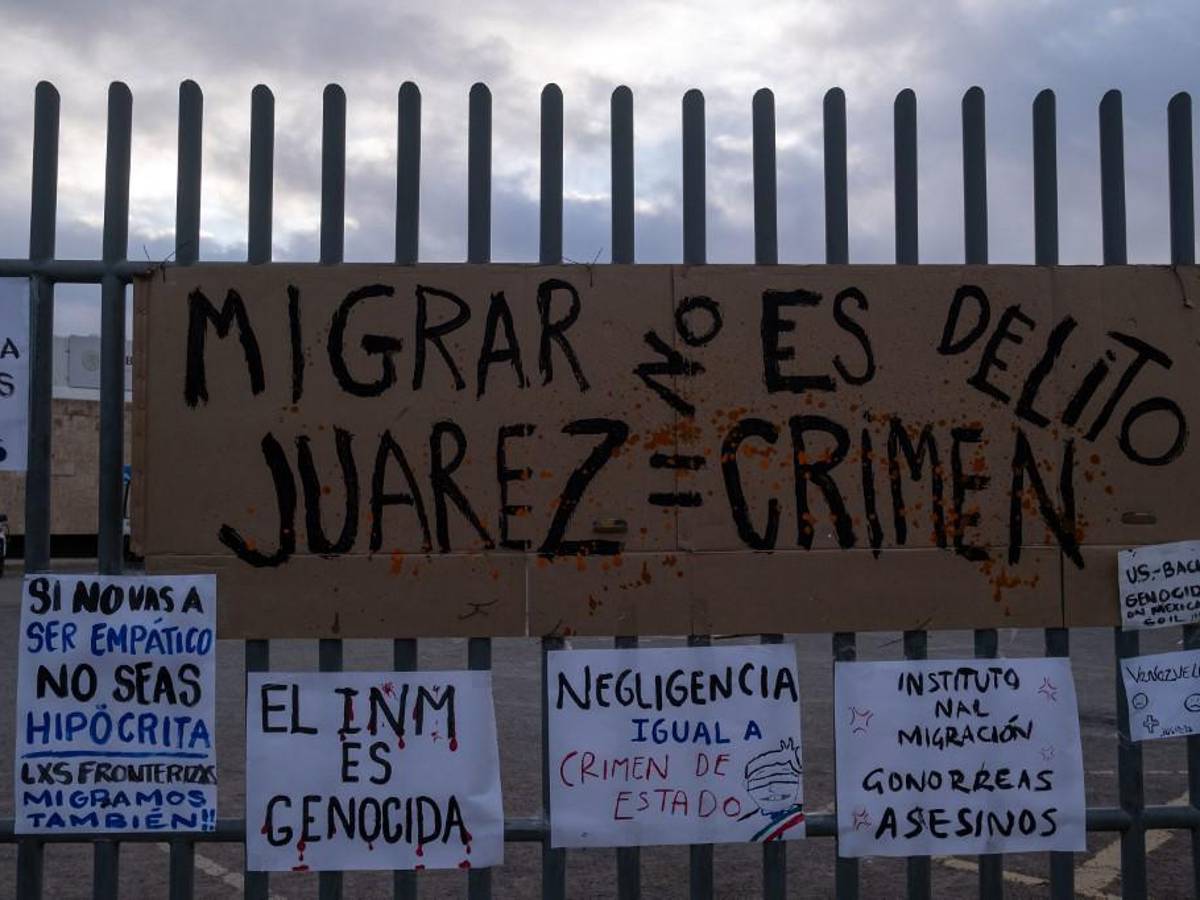 MIGRAR NO ES DELiTO
JUAREZ = CRIMEN
SI NO VAS A
SER EMPÁTICO
NO SEAS
HIPÓCRITA
LXS FRONTERIZXS
MIGRAMOS
TAMBIÉN!!
EL INM
ES
GENOCIDA
NEGLIGENCIA
IGUAL A
CRIMEN DE
ESTADO
INSTITUTO
NAL
MIGRACIÓN
GONORREAS
ASESINOS
U.S.-BACK
GENOCID
ON MEXICA
SOIL !!!
VENEZUEL
A
S